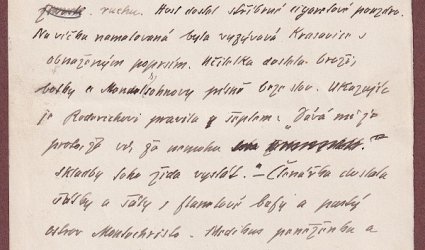 ruchu. Host dostal stříbrné cigaretové pouzdro.
Na víčku namalovaná byla vyzývavá krasavice s
obnaženým poprsím. Učitelka dostala brože,
a Mendelsohnovy písně beze slov. Ukazujíc
je Rodovichovi pravila s šeptem: "Dává mi je
proto, že ví, že nemohu
skladby toho žida vystát." – Čtenářka dostala
šátky a šály s flanelové a
ostrov Montechristo. peněženku a